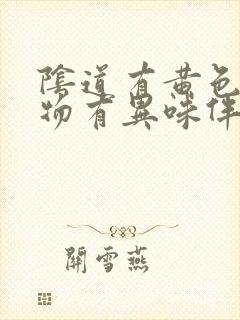 陰道有黄色
物有異味伴
關雪燕